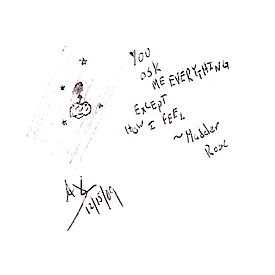 YOU
ASK
ME EVERYTHING
EXCEPT
HOW I FEEL
~ Mudder
Rose
12/15/09